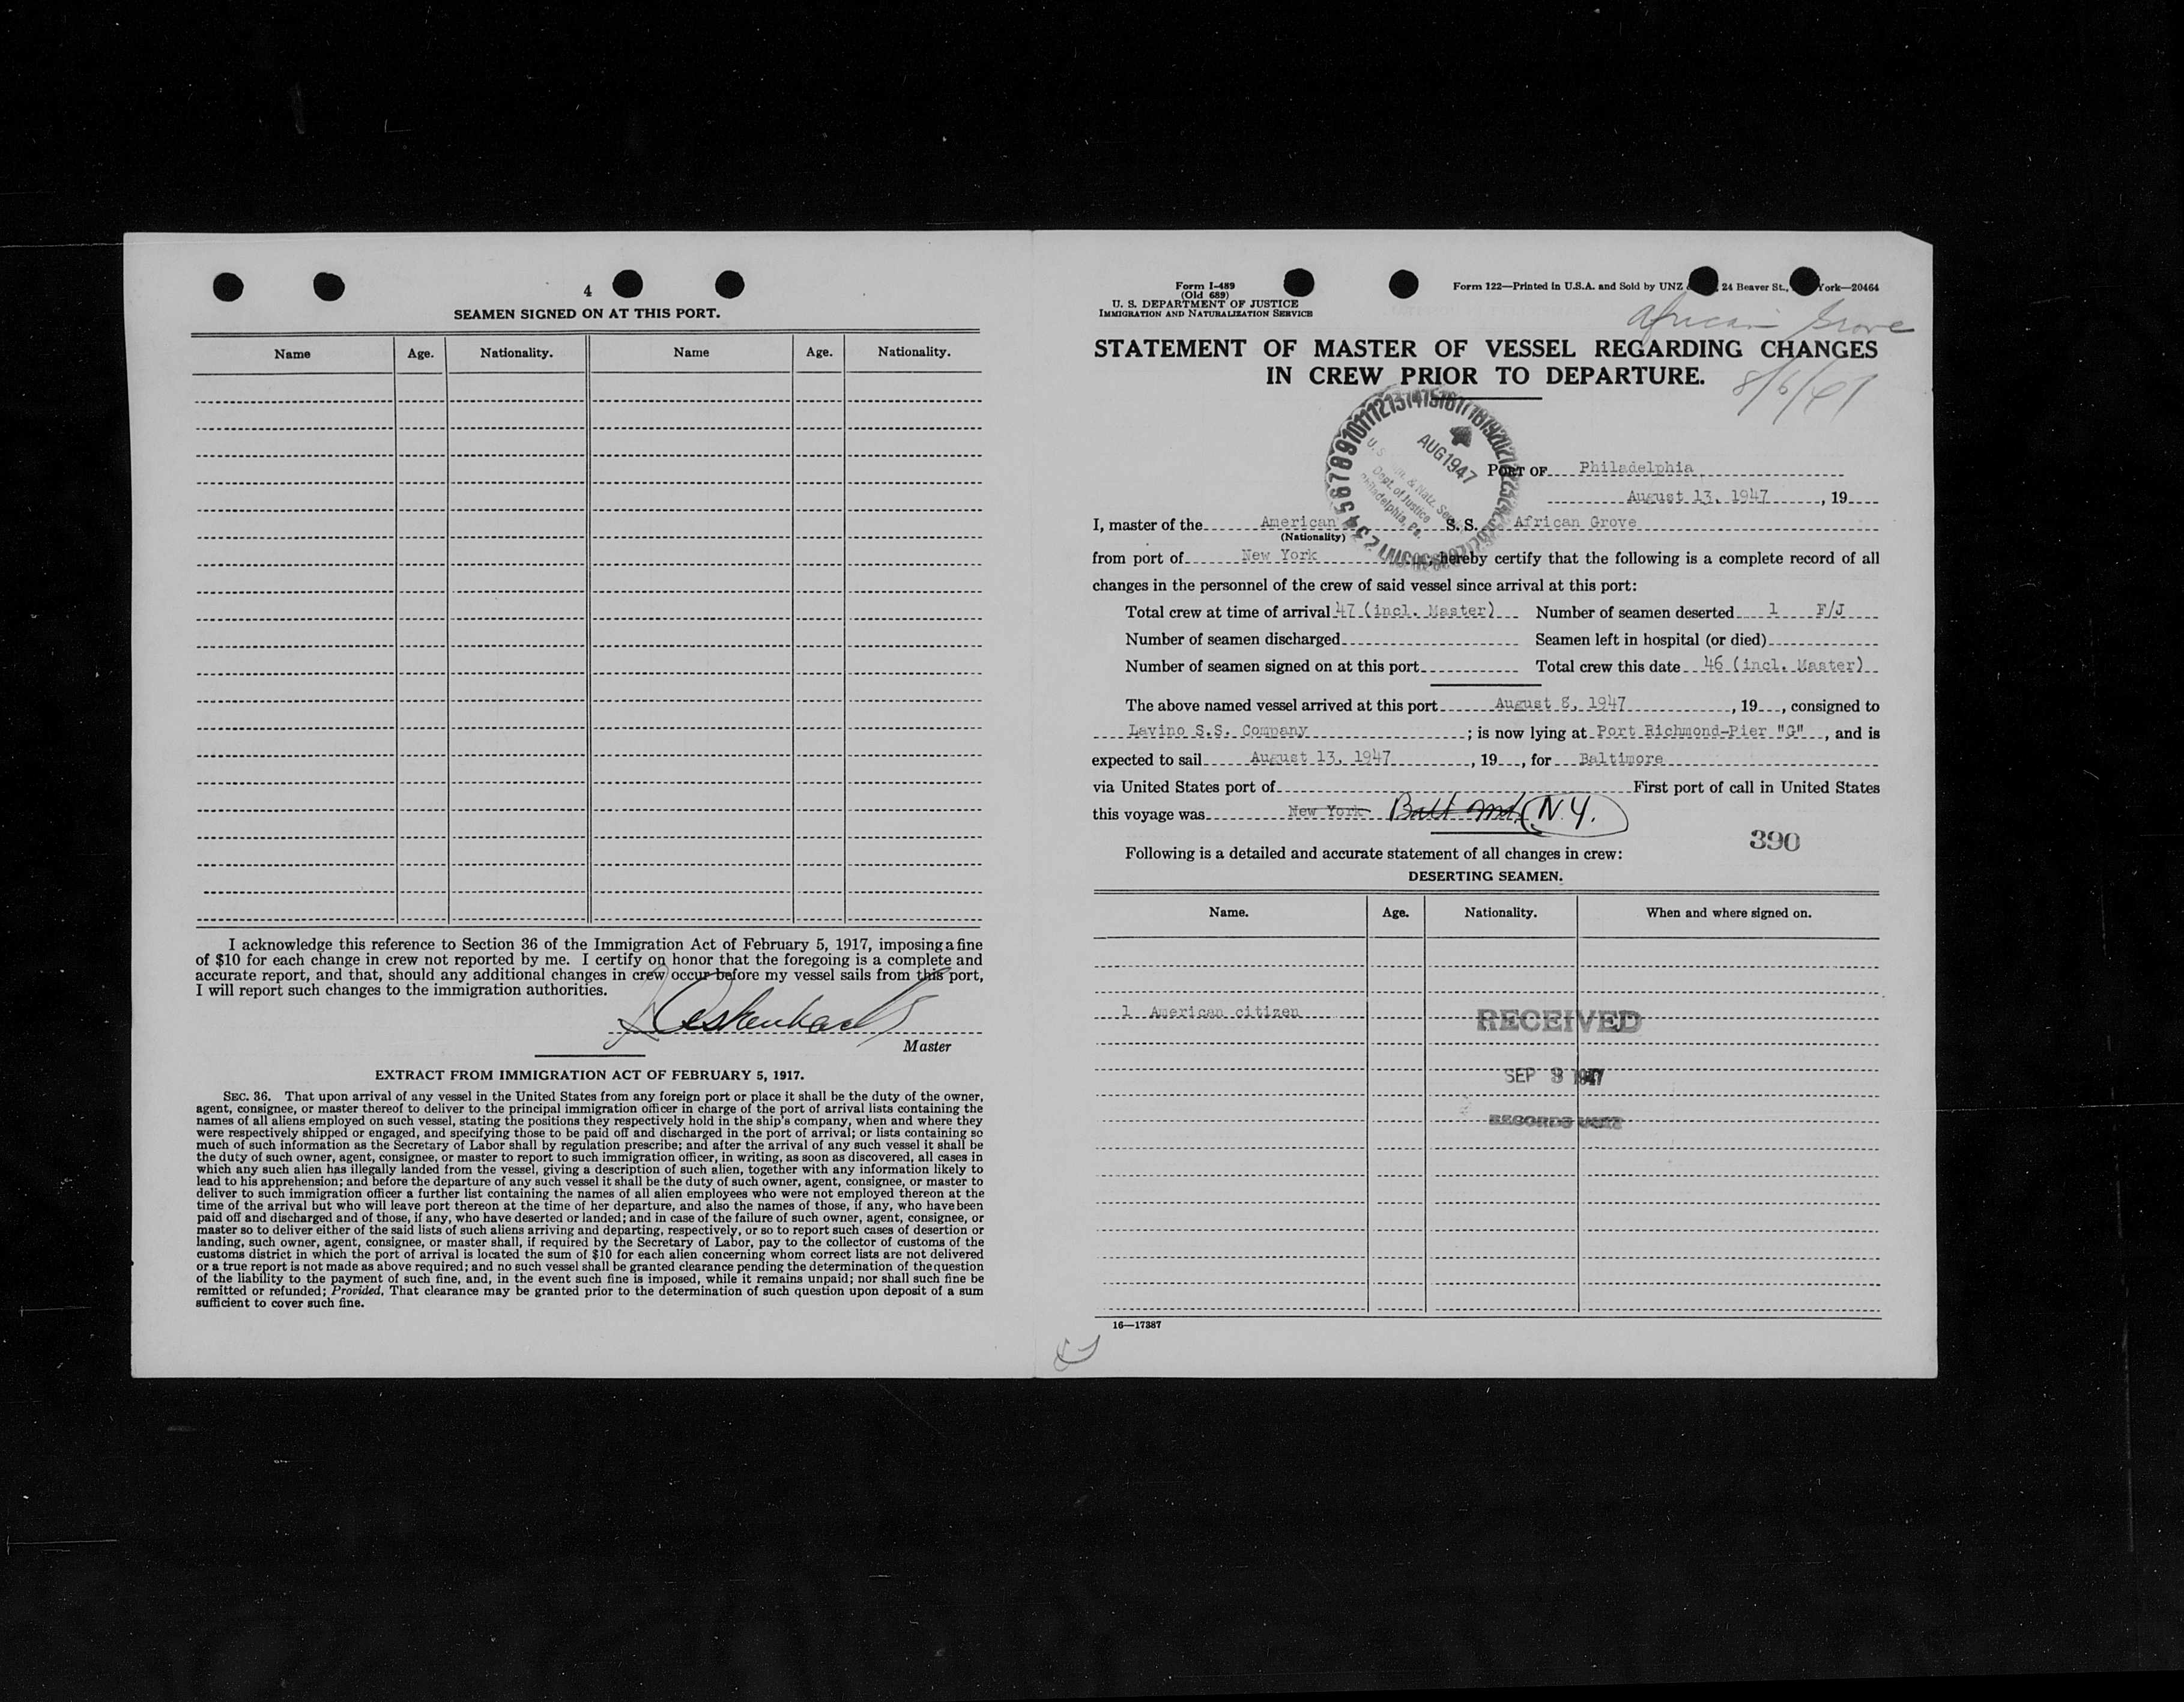 4
SEAMEN SIGNED ON AT THIS PORT.
Name Age. Nationality. Name Age. Nationality.
I acknowledge this reference to Section 36 of the Immigration Act of February 5, 1917, imposing a fine
of $10 for each change in crew not reported by me. I certify on honor that the foregoing is a complete and
accurate report, and that, should any additional changes in crew occur before my vessel sails from this port,
I will report such changes to the immigration authorities.
Master
EXTRACT FROM IMMIGRATION ACT OF FEBRUARY 5, 1917.
SEC. 36. That upon arrival of any vessel in the United States from any foreign port or place it shall be the duty of the owner,
agent, consignee, or master thereof to deliver to the principal immigration officer in charge of the port of arrival lists containing the
names of all aliens employed on such vessel, stating the positions they respectively hold in the ship's company, when and where they
were respectively shipped or engaged, and specifying those to be paid off and discharged in the port of arrival; or lists containing so
much of such information as the Secretary of Labor shall by regulation prescribe; and after the arrival of any such vessel it shall be
the duty of such owner, agent, consignee, or master to report to such immigration officer, in writing, as soon as discovered, all cases in
which any such alien has illegally landed from the vessel, giving a description of such alien, together with any information likely to
lead to his apprehension; and before the departure of any such vessel it shall be the duty of such owner, agent, consignee, or master to
deliver to such immigration officer a further list containing the names of all alien employees who were not employed thereon at the
time of the arrival but who will leave port thereon at the time of her departure, and also the names of those, if any, who have been
paid off and discharged and of those, if any, who have deserted or landed; and in case of the failure of such owner, agent, consignee, or
master so to deliver either of the said lists of such aliens arriving and departing, respectively, or so to report such cases of desertion or
landing, such owner, agent, consignee, or master shall, if required by the Secretary of Labor, pay to the collector of customs of the
customs district in which the port of arrival is located the sum of $10 for each alien concerning whom correct lists are not delivered
or a true report is not made as above required; and no such vessel shall be granted clearance pending the determination of the question
of the liability to the payment of such fine, and, in the event such fine is imposed, while it remains unpaid; nor shall such fine be
remitted or refunded; Provided, That clearance may be granted prior to the determination of such question upon deposit of a sum
sufficient to cover such fine.
Form I-489
(Old 689)
U. S. DEPARTMENT OF JUSTICE
IMMIGRATION AND NATURALIZATION SERVICE
Form 122—Printed in U.S.A. and Sold by UNZ 24 Beaver St., York—20464
African Grove
STATEMENT OF MASTER OF VESSEL REGARDING CHANGES
IN CREW PRIOR TO DEPARTURE.
8/6/47
AUG 1947
U. S. & Natz. Ser
Dept. of Justice
Philadelphia, Pa.
PORT OF Philadelphia
August 13, 1947, 19
I, master of the American S. S. African Grove
(Nationality)
from port of New York, hereby certify that the following is a complete record of all
changes in the personnel of the crew of said vessel since arrival at this port:
Total crew at time of arrival 47 (incl. Master) Number of seamen deserted 1 F/J
Number of seamen discharged Seamen left in hospital (or died)
Number of seamen signed on at this port Total crew this date 46 (incl. Master)
The above named vessel arrived at this port August 8, 1947, 19, consigned to
Lavino S.S. Company; is now lying at Port Richmond-Pier "G", and is
expected to sail August 13, 1947, 19, for Baltimore
via United States port of First port of call in United States
this voyage was New York Balt Md. N.Y.
390
Following is a detailed and accurate statement of all changes in crew:
DESERTING SEAMEN.
Name. Age. Nationality. When and where signed on.
1 American citizen
RECEIVED
SEP 3 1947
RECORDS
16—17387